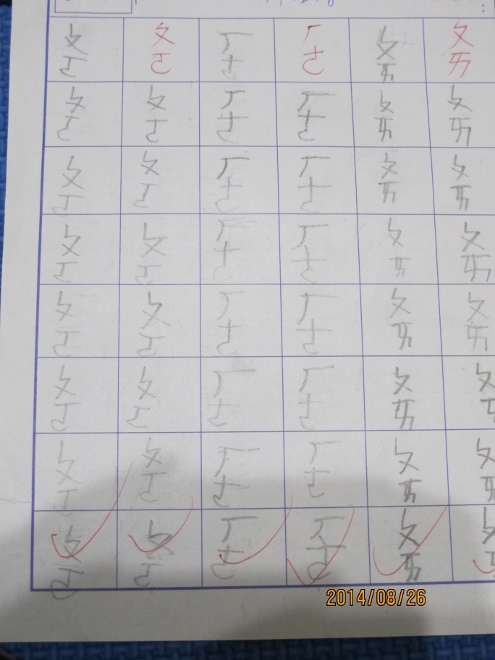 ㄆㄛ ㄆㄛ ㄏㄜ ㄏㄜ ㄆㄞ ㄆㄞ
ㄆㄛ ㄆㄛ ㄏㄜ ㄏㄜ ㄆㄞ ㄆㄞ
ㄆㄛ ㄆㄛ ㄏㄜ ㄏㄜ ㄆㄞ ㄆㄞ
ㄆㄛ ㄆㄛ ㄏㄜ ㄏㄜ ㄆㄞ ㄆㄞ
ㄆㄛ ㄆㄛ ㄏㄜ ㄏㄜ ㄆㄞ ㄆㄞ
ㄆㄛ ㄆㄛ ㄏㄜ ㄏㄜ ㄆㄞ ㄆㄞ
ㄆㄛ ㄆㄛ ㄏㄜ ㄏㄜ ㄆㄞ ㄆㄞ
ㄆㄛ ㄆㄛ ㄏㄜ ㄏㄜ ㄆㄞ ㄆㄞ
2014/08/26